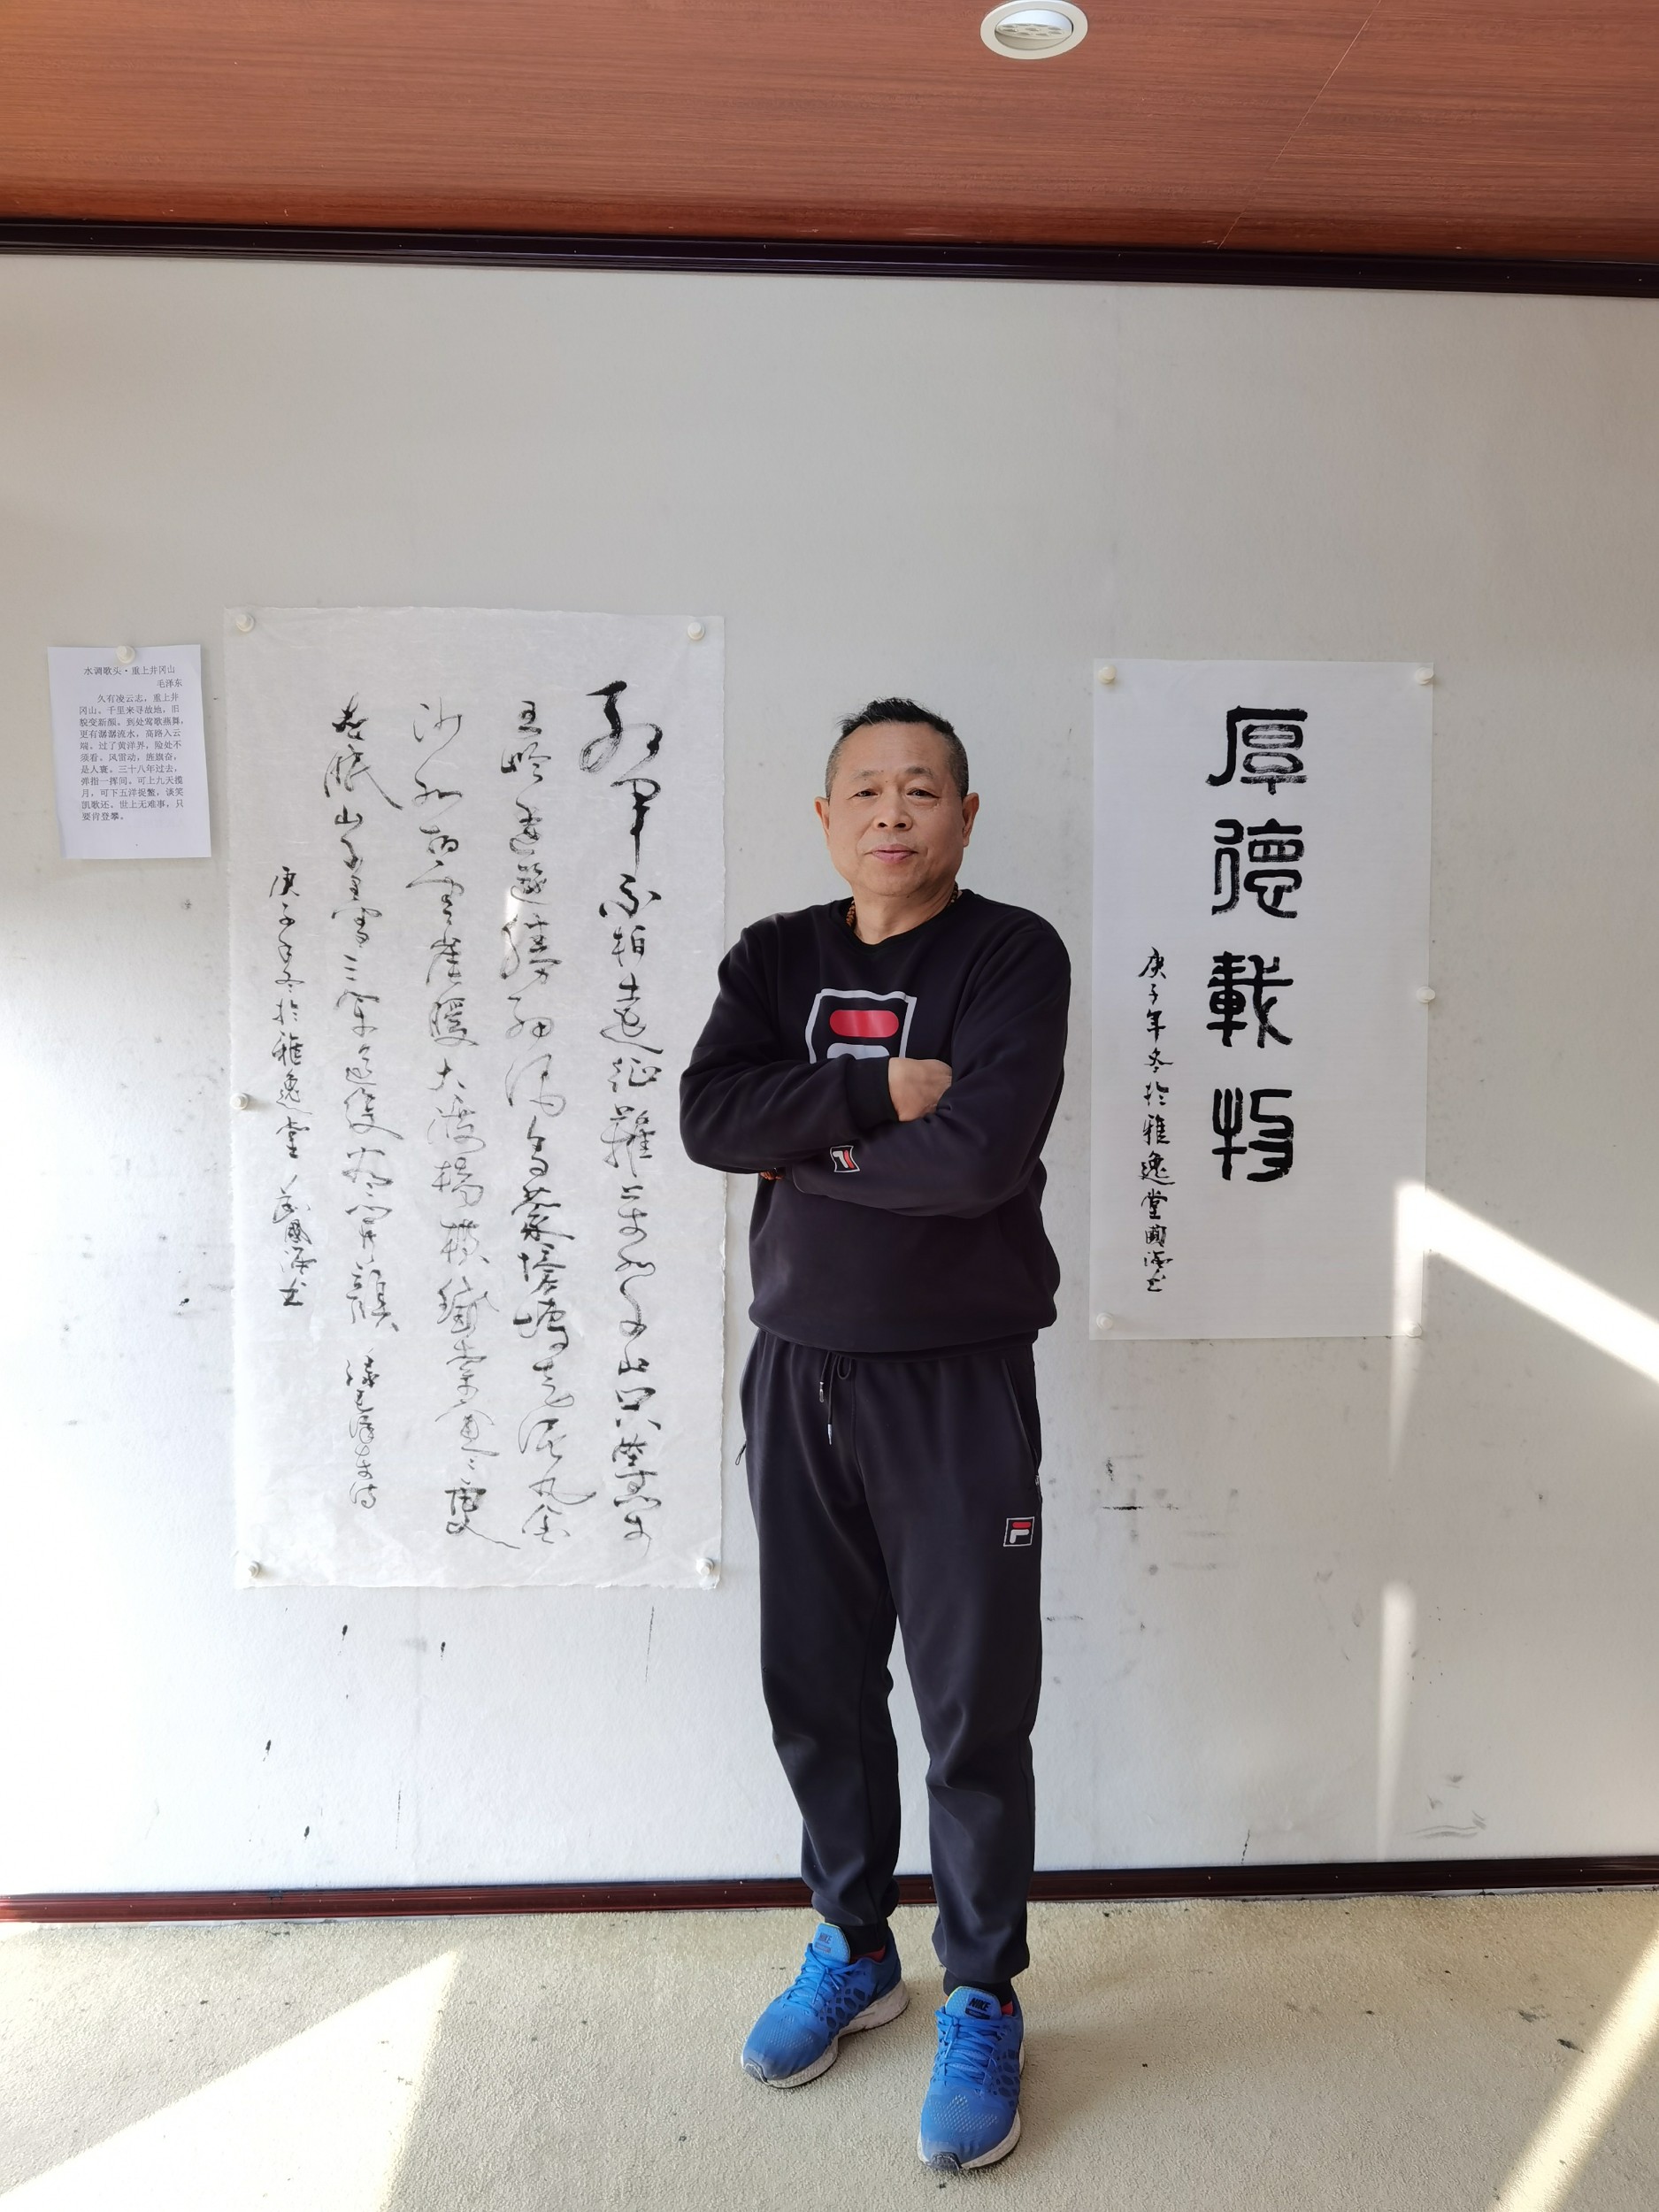 水调歌头·重上井冈山
毛泽东
久有凌云志，重上井
冈山。千里来寻故地，旧
貌变新颜。到处莺歌燕舞，
更有潺潺流水，高路入云
端。过了黄洋界，险处不
须看。风雷动，旌旗奋，
是人寰。三十八年过去，
弹指一挥间。可上九天揽
月，可下五洋捉鳖，谈笑
凯歌还。世上无难事，只
要肯登攀。
红军不怕远征難万水千山只等闲
五岭逶迤腾细浪乌蒙磅礴走泥丸金
沙水拍雲崖暖大渡橋横鐵索寒更
喜岷山千里雪三军过後尽開颜 録毛泽东诗
庚子年冬於雅逸堂 國海书
厚德載物
庚子年冬於雅逸堂國海书
NIKE
NIKE